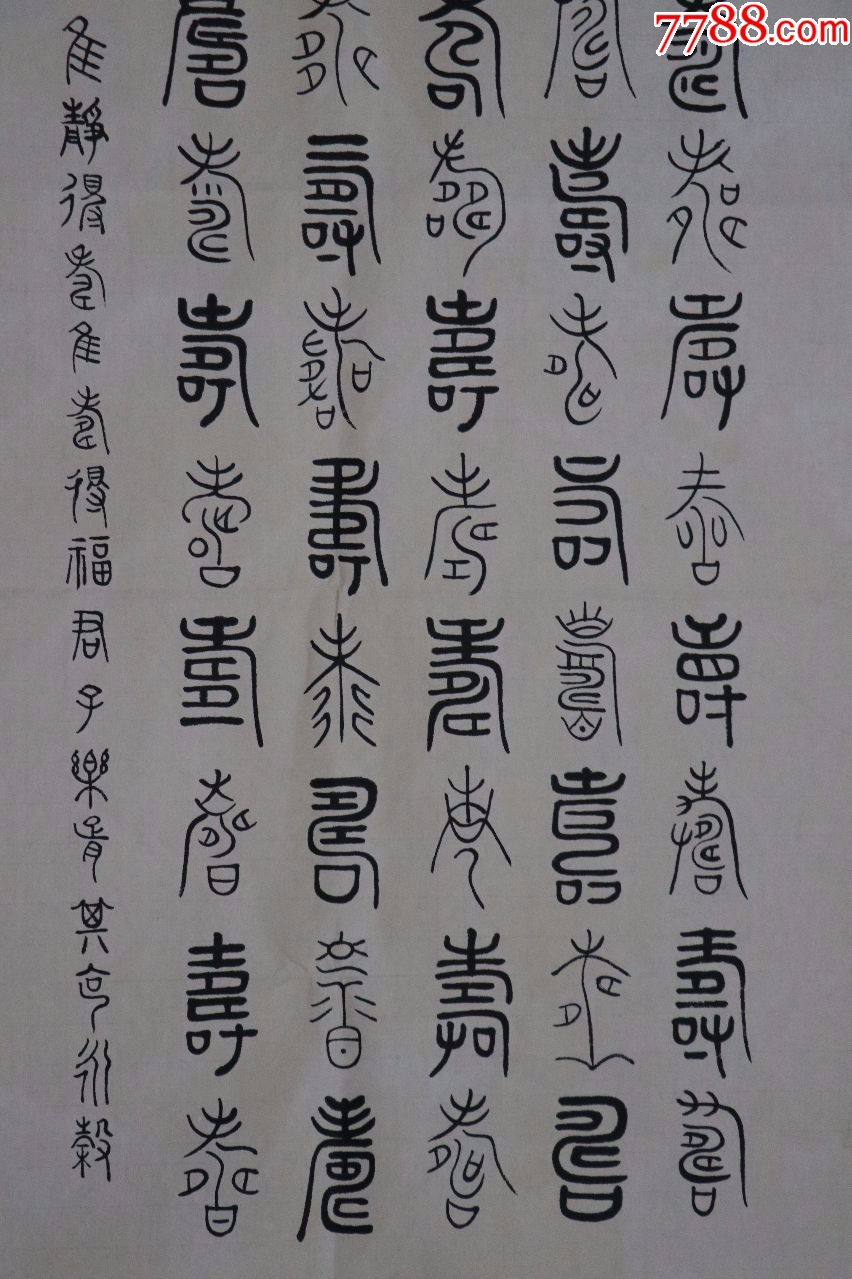 7788.com
壽壽壽壽壽壽壽壽
壽壽壽壽壽壽壽壽
壽壽壽壽壽壽壽壽
壽壽壽壽壽壽壽壽
壽壽壽壽壽壽壽壽
隹靜得壽隹壽得福君子樂胥其永穀